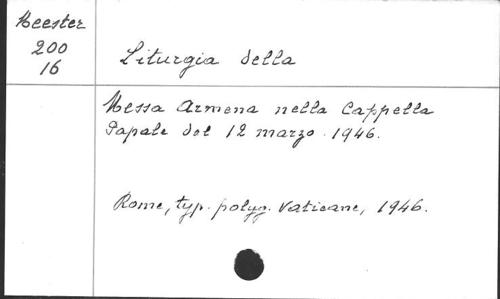 Meester
200
16
Liturgia della
Messa Armena nella Cappella
Papale del 12 marzo 1946.
Rome, typ. polyg. vaticane, 1946.